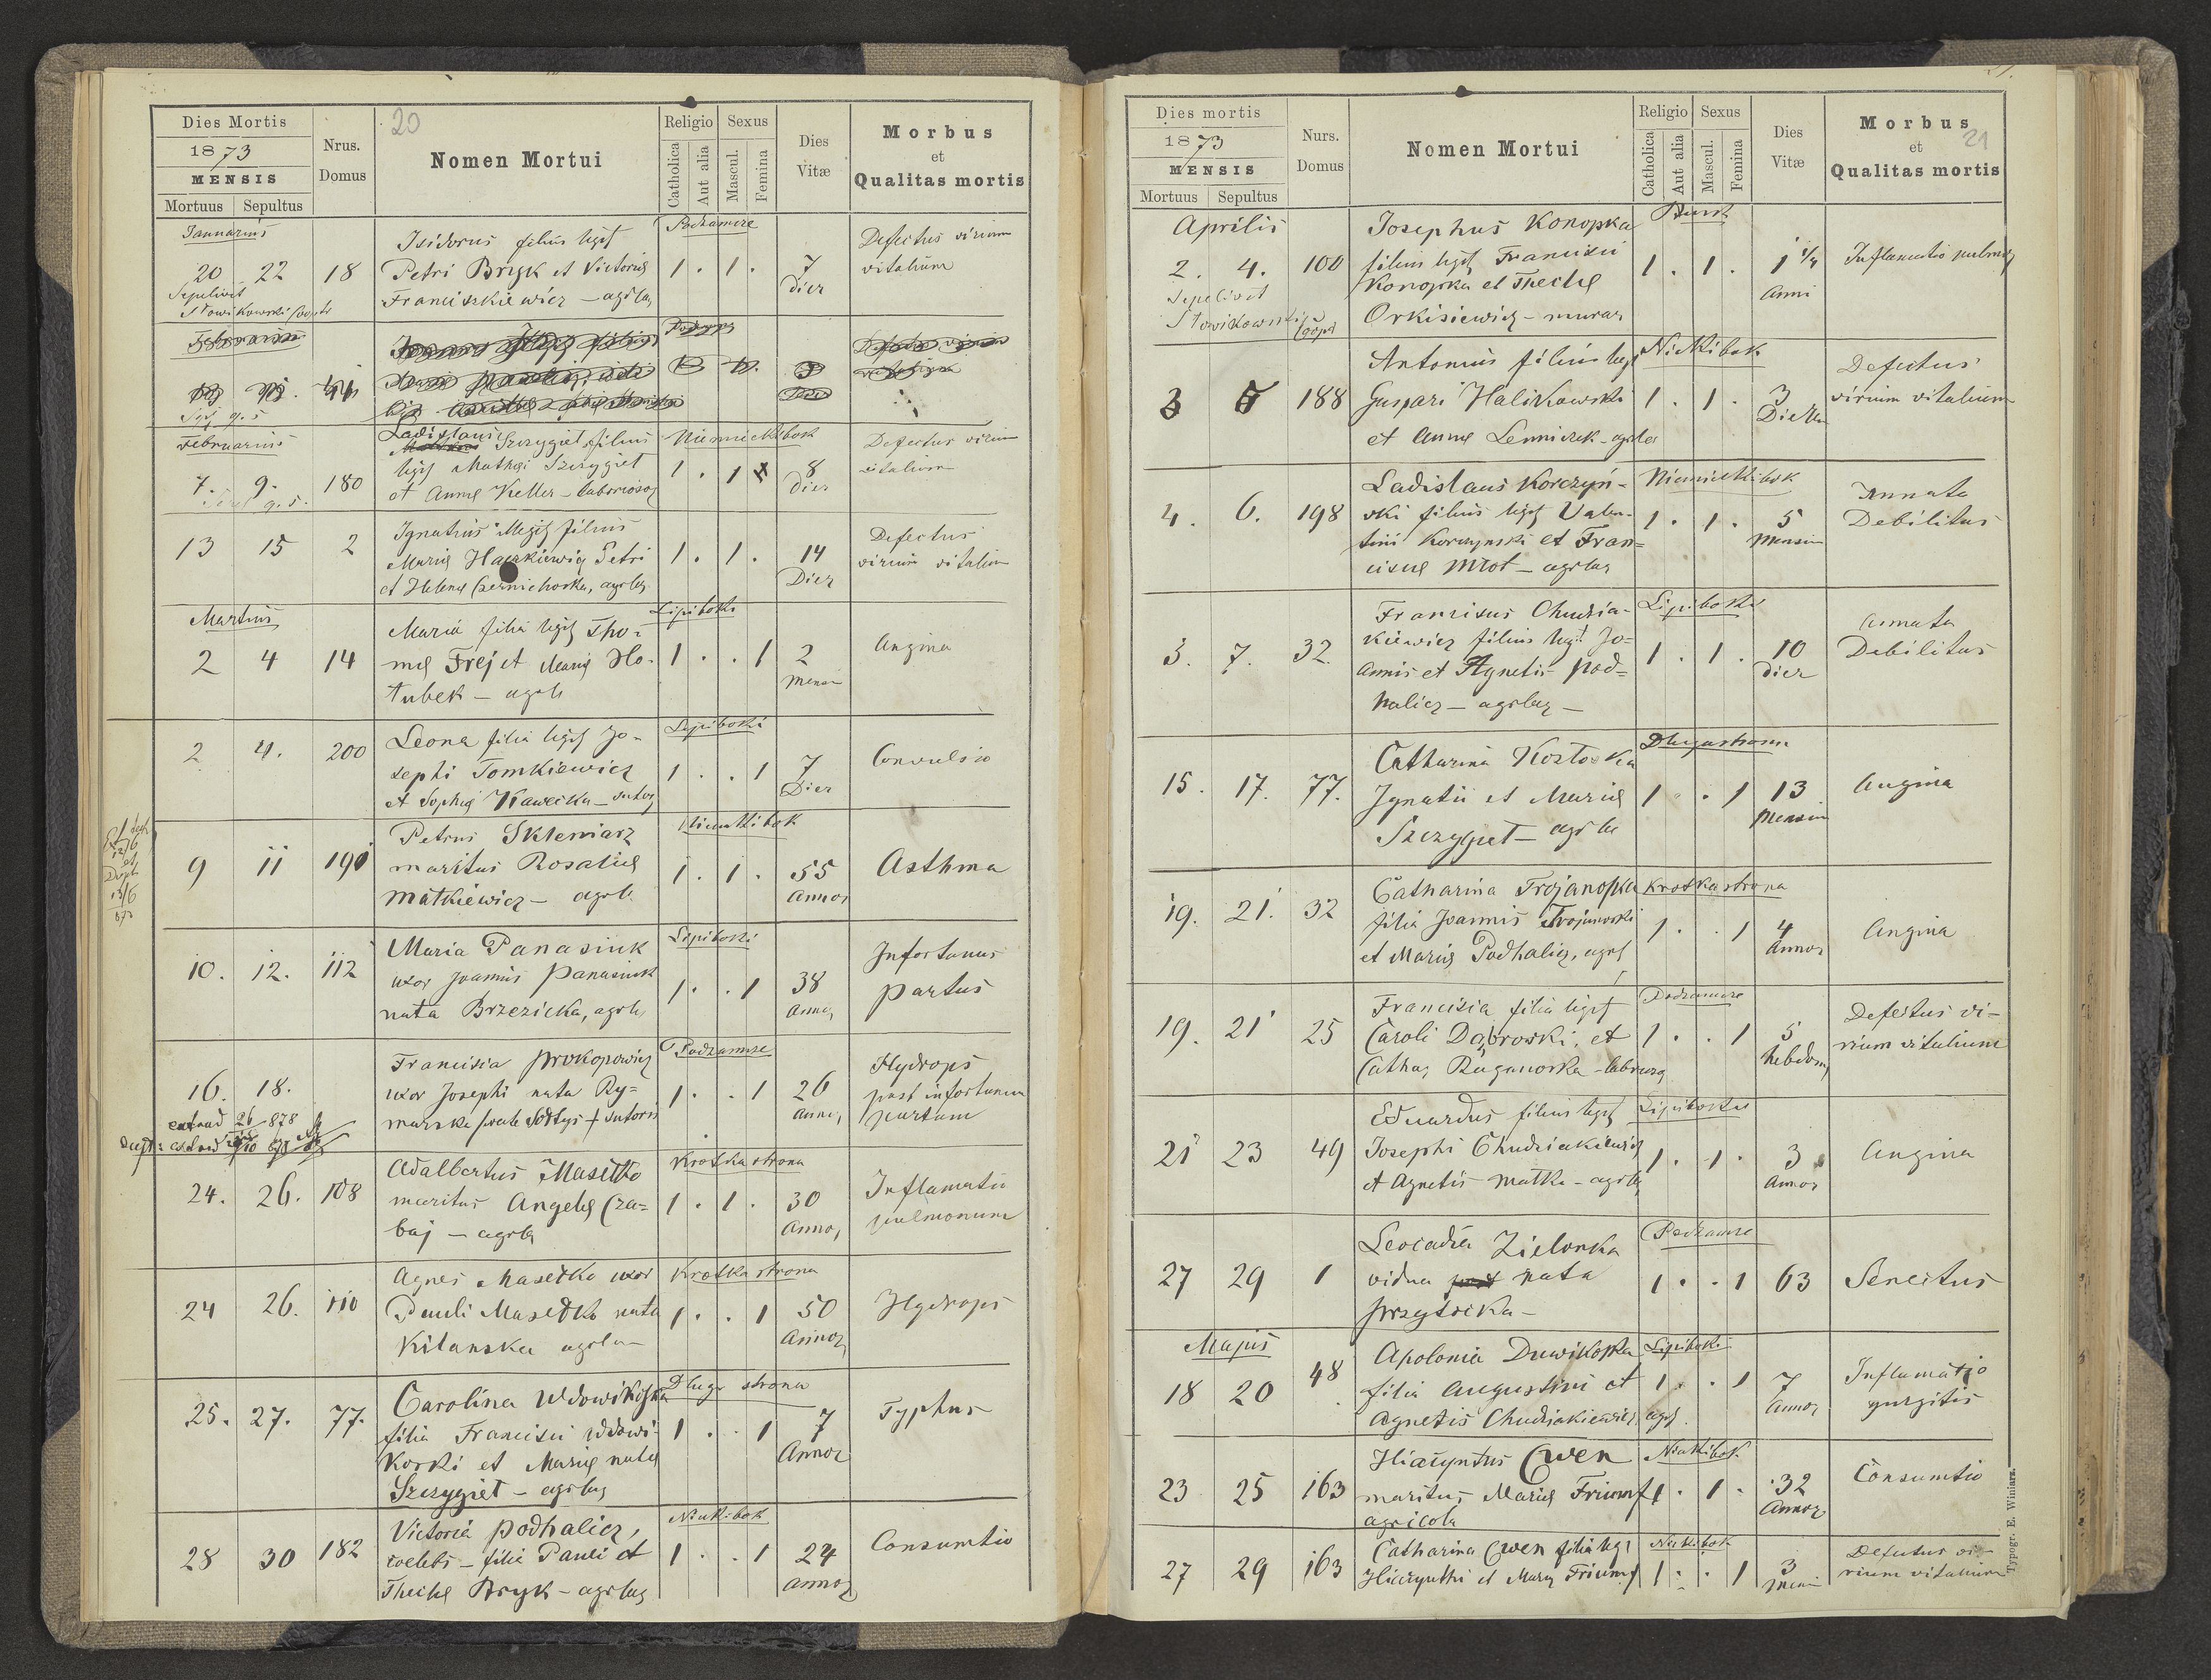 20
Dies Mortis
1873
MENSIS
Mortuus Sepultus
Nrus.
Domus
Nomen Mortui
Religio
Catholica
Aut alia
Sexus
Mascul.
Femina
Dies
Vitæ
Morbus
et
Qualitas mortis
Januarius
20 22 18
Sepelivit
Słowikowski
Isidorus filius legit
Petri Bryk et Victoriæ
Franciszkiewicz — agrlæ
Podzamcze
1 . 1 .
7
Dier
Defectus virium
vitalium
Februarius
Februarius
7. 9. 180
Ladislaus Szczygieł filius
legit Mathæi Szczygieł
et Annæ Keller — laborios
Niemieckibok
1 . 1
8
Dier
Defectus virium
vitalium
13 15 2
Ignatius illegit filius
Mariæ Petri
et Helenæ Czernichoska, agrlæ
1 . 1 .
14
Dier
Defectus
virium vitalium
Martius
2 4 14
Maria filia legit Tho-
mæ Frej et Mariæ Ho-
łubek — agrlæ
Lipiboki
1 . . 1
2
Mens
Angina
2 4. 200
Leona filia legit Jo-
sephi Tomkiewicz
et Sophiæ Kawecka — sutor
Lipiboki
1 . . 1
7
Dier
Convulsio
9 11 191
Petrus Skleniarz
maritus Rosaliæ
Matkiewicz — agrlæ
1 . 1 .
55
Annor
Asthma
10. 12. 112
Maria Panasiuk
uxor Joannis Panasiuk
nata Brzezicka, agrlæ
Lipiboki
1 . . 1
38
Annor
Infortunus
partus
16. 18.
Francisia Prokopowicz
uxor Josephi nata Ry-
marska sutoris
Podzamcze
1 . . 1
26
Annor
Hydrops
post infortunum
partum
24. 26. 108
Adalbertus Masełko
maritus Angelæ Cza-
baj — agrlæ
Krotka strona
1 . 1 .
30
Annor
Inflamatio
pulmonum
24 26. 110
Agnes Masełko uxor
Pauli Masełko nata
Kilanska agrlæ
Krotka strona
1 . . 1
50
Annor
Hydrops
25. 27. 77.
Carolina Wdowikoska
filia Francisci Wdowi-
koski et Mariæ natæ
Szczygieł — agrlæ
Długa strona
1 . . 1
7
Annor
Typhus
28 30 182
Victoria Podhalicz,
coelebs — filia Pauli et
Theclæ Bryk — agrlæ
1 . . 1
24
Annor
Consumtio
21
Dies mortis
1873
MENSIS
Mortuus Sepultus
Nurs.
Domus
Nomen Mortui
Religio
Catholica
Aut alia
Sexus
Mascul.
Femina
Dies
Vitæ
Morbus
et
Qualitas mortis
Aprilis
2. 4. 100
Sepelivit
Słowikowski
Josephus Konopka
filius legit Francisci
Konopka et Theclæ
Orkisiewicz — murar
1 . 1 .
1 1/4
Anni
Inflamatio pulmon
3 188
Antonius filius legit
Gaspari Halikowski
et Annæ Lenniczek — agrlæ
1 . 1 .
3
Dier
Defectus
virium vitalium
4. 6. 198
Ladislaus Korczyń-
ski filius legit Valen-
tini Korczynski et Fran-
ciscæ Młot — agrlæ
Niemieckibok
1 . 1 .
5
Mensium
Innata
Debilitas
3. 7. 32.
Franciscus Chudzia-
kiewicz filius legit Jo-
annis et Agnetis Pod-
halicz — agrlæ —
Lipiboki
1 . 1 .
10
Dier
Innata
Debilitas
15. 17. 77.
Catharina Kozłoska
Ignatii et Mariæ
Szczygieł — agrlæ
Długastrona
1 . . 1
13
Mensium
Angina
19. 21. 32
Catharina Trojanoska
filia Joannis Trojanoski
et Mariæ Podhalicz, agrlæ
Krotkastrona
1 . . 1
4
Annor
Angina
19. 21 25
Francisia filia legit
Caroli Dąbroski et
Cathar Ruganoska
Podzamcze
1 . . 1
5
hebdom
Defectus vi-
rium vitalium
21 23 49
Eduardus filius legit
Josephi Chudziakiewicz
et Agnetis Matka — agrlæ
Lipiboki
1 . 1 .
3
Annor
Angina
27 29 1
Leocadia Zielonka
vidua nata
Przyłocka —
Podzamcze
1 . . 1
63
Senectus
Majus
18 20 48
Apolonia Duwikoska
filia Augustini et
Agnetis Chudziakiewicz agrlæ
Lipiboki
1 . . 1
7
Annor
Inflamatio
gurgitis
23 25 163
Hiacyntus Cwen
maritus Mariæ Friumf
agricola
1 . 1 .
32
Annor
Consumtio
27 29 163
Catharina Cwen filia legit
Hiacynthi et Mariæ Friumf
1 . . 1
3
Defectus vi-
rium vitalium
Typogr. E. Winiarz.